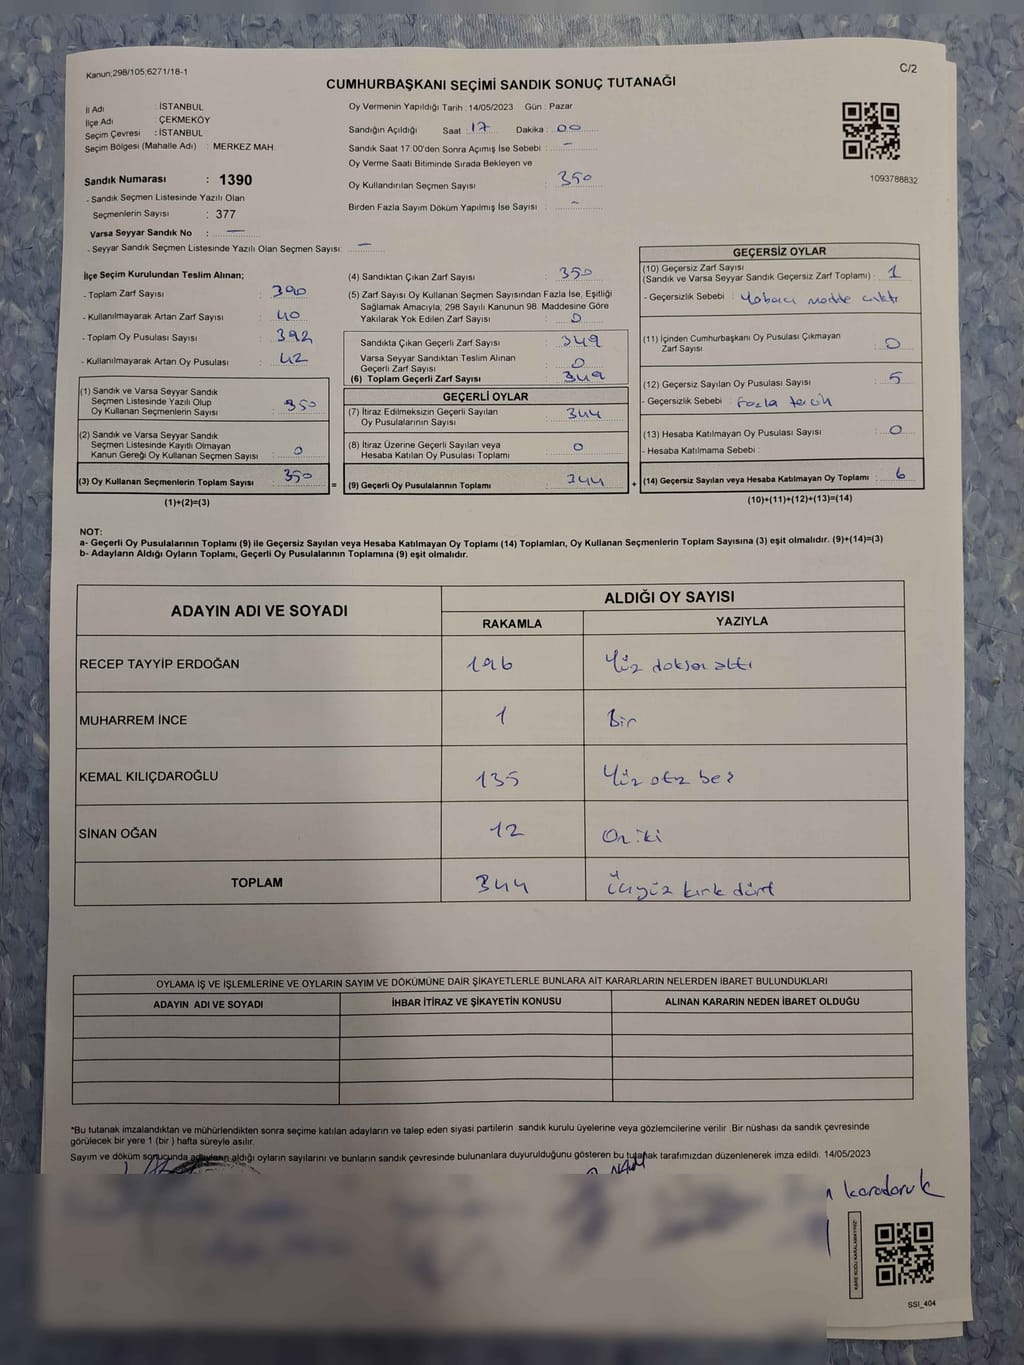 Kanun;298/105,6271/18-1
C/2
CUMHURBAŞKANI SEÇİMİ SANDIK SONUÇ TUTANAĞI
İl Adı : İSTANBUL
İlçe Adı : ÇEKMEKÖY
Seçim Çevresi : İSTANBUL
Seçim Bölgesi (Mahalle Adı) : MERKEZ MAH.
Sandık Numarası : 1390
- Sandık Seçmen Listesinde Yazılı Olan
Seçmenlerin Sayısı : 377
Varsa Seyyar Sandık No : —
- Seyyar Sandık Seçmen Listesinde Yazılı Olan Seçmen Sayısı: —
Oy Vermenin Yapıldığı Tarih : 14/05/2023 Gün : Pazar
Sandığın Açıldığı Saat : 17 Dakika : 00
Sandık Saat 17:00'den Sonra Açımış İse Sebebi : —
Oy Verme Saati Bitiminde Sırada Bekleyen ve
Oy Kullandırılan Seçmen Sayısı : 350
Birden Fazla Sayım Döküm Yapılmış İse Sayısı : -
1093788832
İlçe Seçim Kurulundan Teslim Alınan;
- Toplam Zarf Sayısı : 390
- Kullanılmayarak Artan Zarf Sayısı : 40
- Toplam Oy Pusulası Sayısı : 392
- Kullanılmayarak Artan Oy Pusulası : 42
(1) Sandık ve Varsa Seyyar Sandık
Seçmen Listesinde Yazılı Olup
Oy Kullanan Seçmenlerin Sayısı : 350
(2) Sandık ve Varsa Seyyar Sandık
Seçmen Listesinde Kayıtlı Olmayan
Kanun Gereği Oy Kullanan Seçmen Sayısı : 0
(3) Oy Kullanan Seçmenlerin Toplam Sayısı : 350
(1)+(2)=(3)
=
(4) Sandıktan Çıkan Zarf Sayısı : 350
(5) Zarf Sayısı Oy Kullanan Seçmen Sayısından Fazla İse, Eşitliği
Sağlamak Amacıyla, 298 Sayılı Kanunun 98. Maddesine Göre
Yakılarak Yok Edilen Zarf Sayısı : 0
Sandıkta Çıkan Geçerli Zarf Sayısı : 349
Varsa Seyyar Sandıktan Teslim Alınan
Geçerli Zarf Sayısı : 0
(6) Toplam Geçerli Zarf Sayısı : 349
GEÇERLİ OYLAR
(7) İtiraz Edilmeksizin Geçerli Sayılan
Oy Pusulalarının Sayısı : 344
(8) İtiraz Üzerine Geçerli Sayılan veya
Hesaba Katılan Oy Pusulası Toplamı : 0
(9) Geçerli Oy Pusulalarının Toplamı : 344
+
GEÇERSİZ OYLAR
(10) Geçersiz Zarf Sayısı
(Sandık ve Varsa Seyyar Sandık Geçersiz Zarf Toplamı) : 1
- Geçersizlik Sebebi : Yabancı madde çıktı
(11) İçinden Cumhurbaşkanı Oy Pusulası Çıkmayan
Zarf Sayısı : 0
(12) Geçersiz Sayılan Oy Pusulası Sayısı : 5
- Geçersizlik Sebebi : Fazla tercih
(13) Hesaba Katılmayan Oy Pusulası Sayısı : 0
- Hesaba Katılmama Sebebi :
(14) Geçersiz Sayılan veya Hesaba Katılmayan Oy Toplamı : 6
(10)+(11)+(12)+(13)=(14)
NOT:
a- Geçerli Oy Pusulalarının Toplamı (9) ile Geçersiz Sayılan veya Hesaba Katılmayan Oy Toplamı (14) Toplamları, Oy Kullanan Seçmenlerin Toplam Sayısına (3) eşit olmalıdır. (9)+(14)=(3)
b- Adayların Aldığı Oyların Toplamı, Geçerli Oy Pusulalarının Toplamına (9) eşit olmalıdır.
ADAYIN ADI VE SOYADI
ALDIĞI OY SAYISI
RAKAMLA YAZIYLA
RECEP TAYYİP ERDOĞAN 196 Yüz doksan altı
MUHARREM İNCE 1 Bir
KEMAL KILIÇDAROĞLU 135 Yüz otuz beş
SİNAN OĞAN 12 On iki
TOPLAM 344 Üçyüz kırk dört
OYLAMA İŞ VE İŞLEMLERİNE VE OYLARIN SAYIM VE DÖKÜMÜNE DAİR ŞİKAYETLERLE BUNLARA AİT KARARLARIN NELERDEN İBARET BULUNDUKLARI
ADAYIN ADI VE SOYADI İHBAR İTİRAZ VE ŞİKAYETİN KONUSU ALINAN KARARIN NEDEN İBARET OLDUĞU
*Bu tutanak imzalandıktan ve mühürlendikten sonra seçime katılan adayların ve talep eden siyasi partilerin sandık kurulu üyelerine veya gözlemcilerine verilir. Bir nüshası da sandık çevresinde
görülecek bir yere 1 (bir ) hafta süreyle asılır.
Sayım ve döküm sonucunda adayların aldığı oyların sayılarını ve bunların sandık çevresinde bulunanlara duyurulduğunu gösteren bu tutanak tarafımızdan düzenlenerek imza edildi. 14/05/2023
karadoruk
KARE KODU KARALAMAYINIZ!
SSI_404